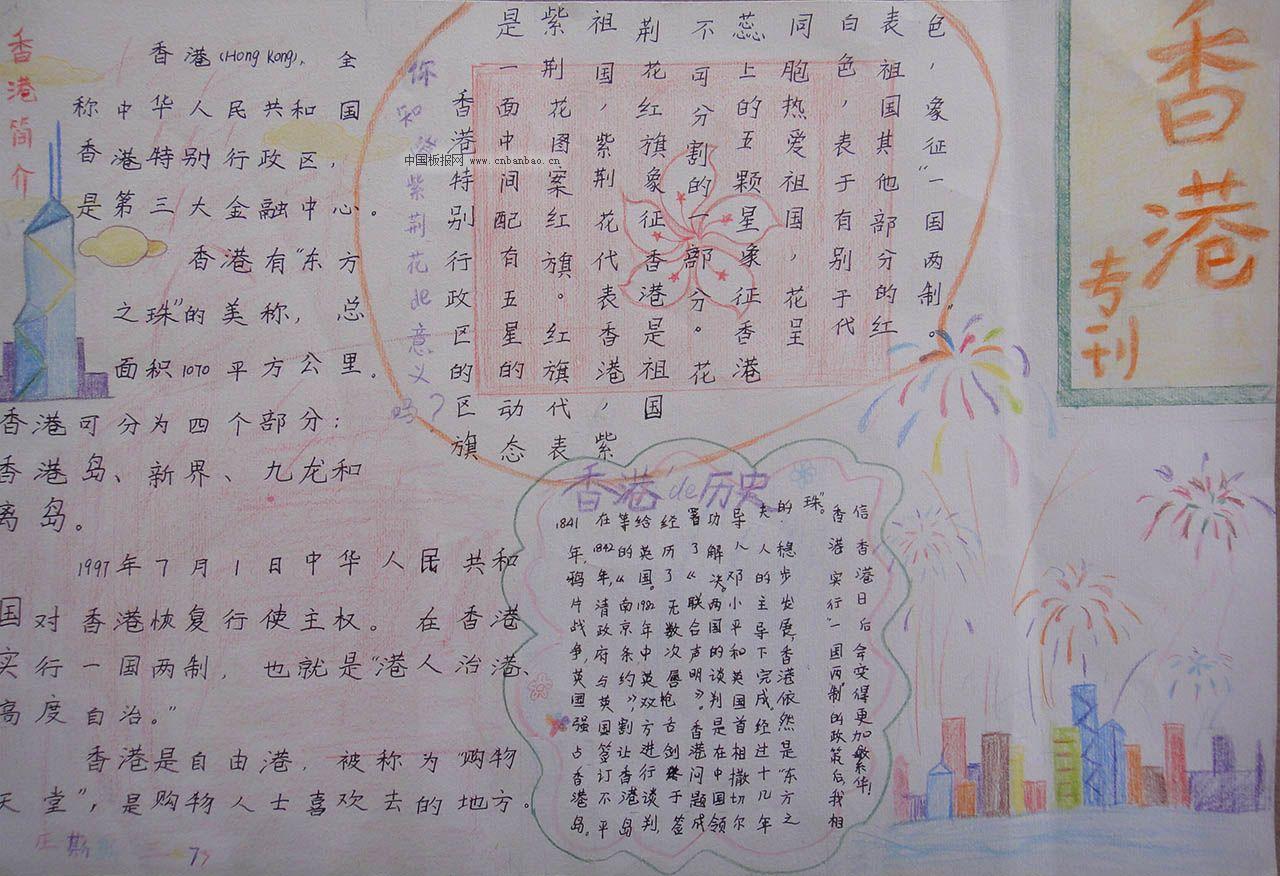 香港
专刊
香港简介
香港(Hong Kong),全
称中华人民共和国
香港特别行政区,
是第三大金融中心。
香港有“东方
之珠”的美称,总
面积1070平方公里。
香港可分为四个部分:
香港岛、新界、九龙和
离岛。
1997年7月1日中华人民共和
国对香港恢复行使主权。在香港
实行一国两制,也就是“港人治港、
高度自治。”
香港是自由港,被称为“购物
天堂”,是购物人士喜欢去的地方。
你知道紫荆花de意义吗?
中国板报网 www.cnbanbao.cn
香港特别行政区的区旗
是一面中间配有五星的动态
紫荆花图案红旗。红旗代表
祖国,紫荆花代表香港,紫
荆花红旗象征香港是祖国
不可分割的一部分。花
蕊上的五颗星象征香港
同胞热爱祖国,花呈
白色,表于有别于代
表祖国其他部分的红
色,象征“一国两制”。
香港de历史
1841年,鸦片战争,英国强占香港岛,
在1842年,清政府与英国签订不平
等的《南京条约》,割让香港岛
给英国。1982年中英双方进行谈判,
经历了无数次唇枪舌剑终于签
署了《联合声明》。香港问题成
功解决。两国的谈判是在中国领
导人邓小平和英国首相撒切尔
夫人的主导下完成,经过十几年
的稳步发展,香港依然是“东方之
珠”。
香港实行“一国两制”的政策后,我相
信香港日后会变得更加繁华!